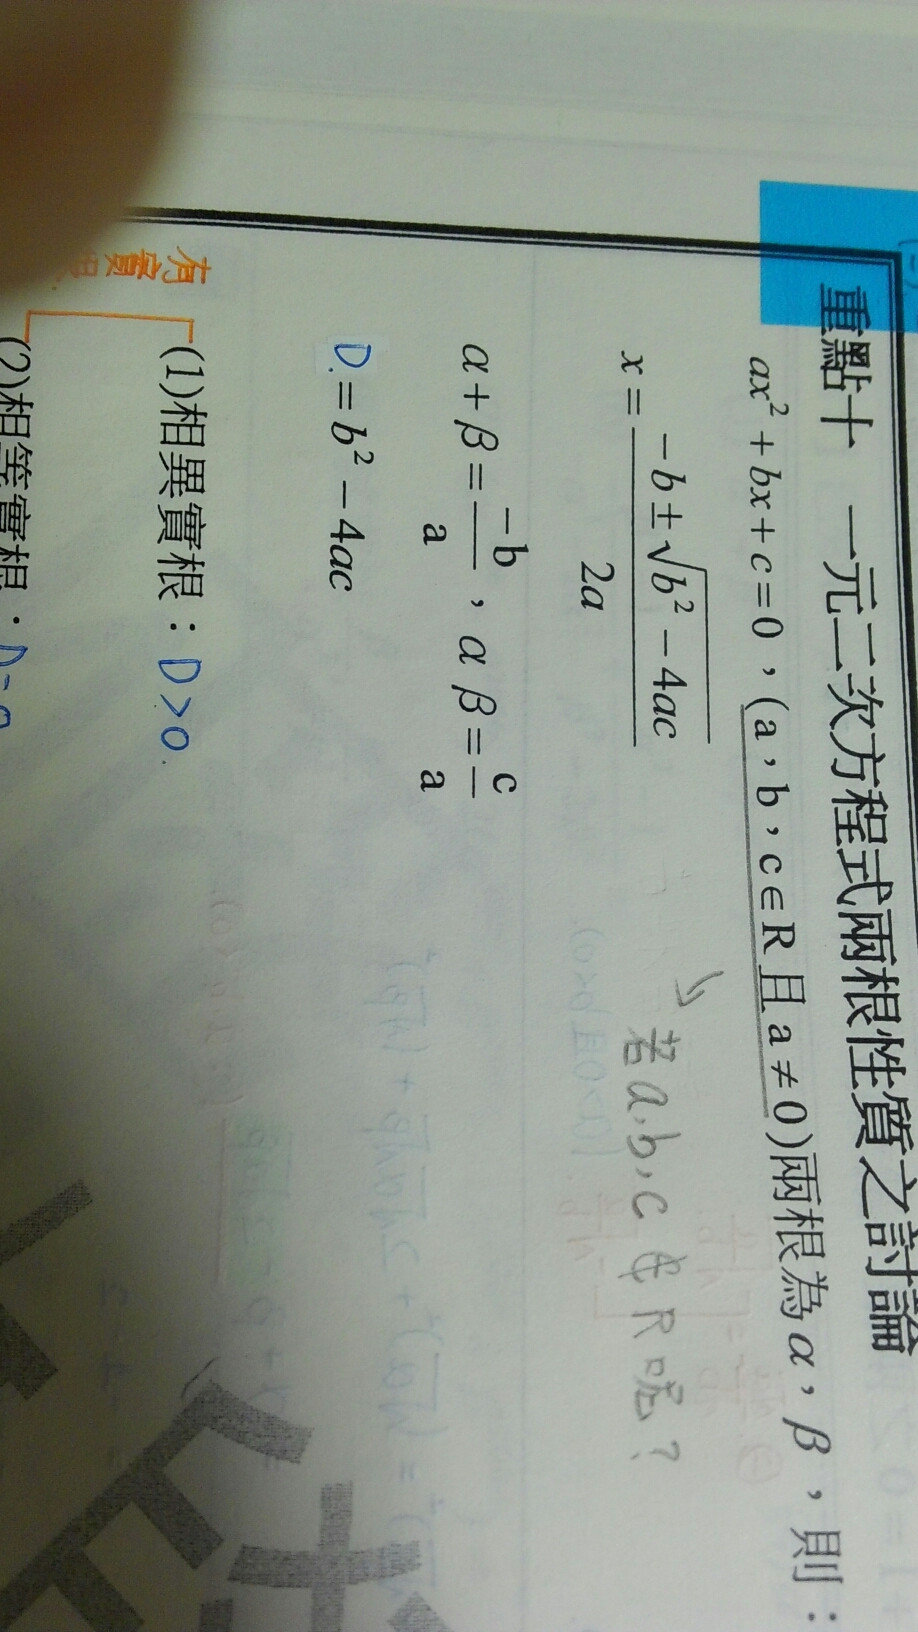 重點十 一元二次方程式兩根性質之討論
ax²+bx+c=0，(a，b，c∈R且a≠0)兩根為α，β，則：
x=\frac{-b±\sqrt{b²-4ac}}{2a}
若a,b,c∉R呢？
α+β=\frac{-b}{a}，αβ=\frac{c}{a}
D=b²-4ac
有實根
(1)相異實根：D>0
(2)相等實根：D=0